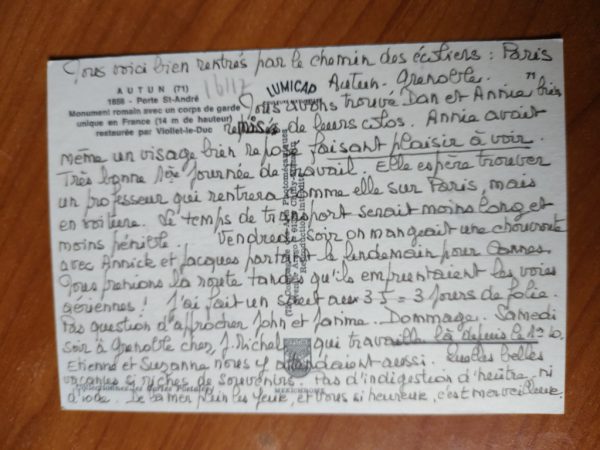 Nous voici bien rentrés par le chemin des écoliers : Paris
Autun. Grenoble.
AUTUN (71)
1856 - Porte St-André
Monument romain avec un corps de garde
unique en France (14 m de hauteur)
restaurée par Viollet-le-Duc
LUMICAP
71
Nous avons trouvé Dan et Annie bien
remises de leurs colos. Annie avait
même un visage bien reposé faisant plaisir à voir.
Très bonne 1ère journée de travail. Elle espère trouver
un professeur qui rentrera comme elle sur Paris, mais
en voiture. Le temps de transport serait moins long et
moins pénible. Vendredi soir on mangeait une choucroute
avec Annick et Jacques partant le lendemain pour Cannes.
Nous prenions la route tandis qu'ils empruntaient les voies
aériennes ! J'ai fait un saut aux 3 S = 3 jours de folie.
Pas question d'approcher John et Janine. Dommage. Samedi
soir à Grenoble chez J. Michel qui travaille là depuis le 1er
Etienne et Suzanne nous y attendaient aussi. Quelles belles
vacances si riches de souvenirs. Pas d'indigestion d'huître, ni
d'iode. De la mer plein les yeux, et vous si heureux, c'est merveilleux.
Reproduction Interdite
MEXICHROME